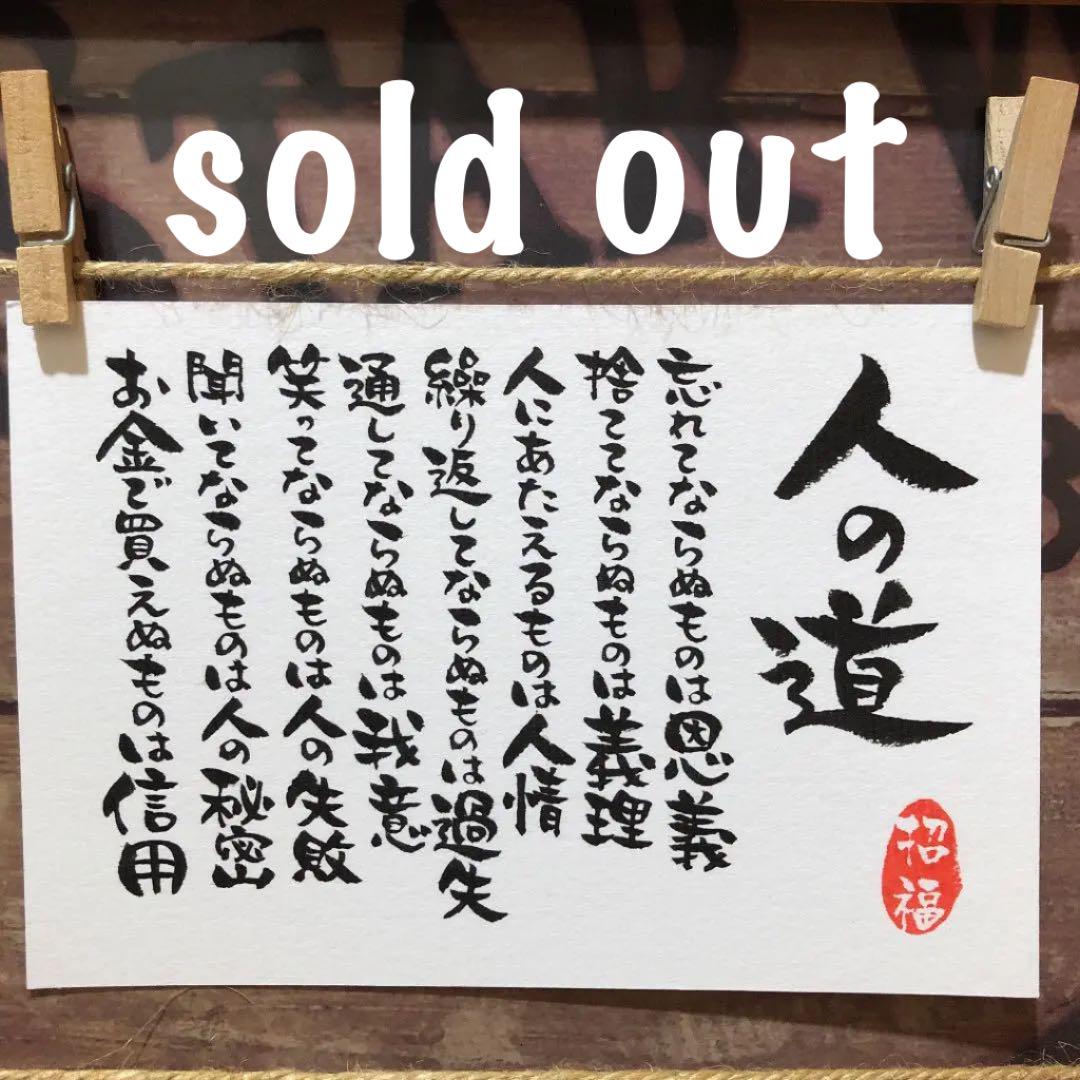 sold out
人の道
忘れてならぬものは恩義
捨ててならぬものは義理
人にあたえるものは人情
繰り返してならぬものは過失
通してならぬものは我意
笑ってならぬものは人の失敗
聞いてならぬものは人の秘密
お金で買えぬものは信用
招福